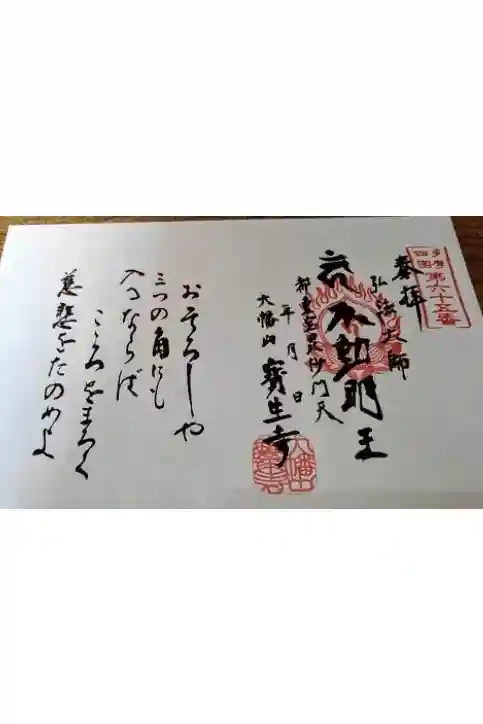 多摩四国第六十五番
奉拝
弘法大師
不動明王
毘沙門天
年 月 日
大幡山 寳生寺
おそろしや
三つの角にも
入るならば
こころをまろく
慈悲をたのめよ